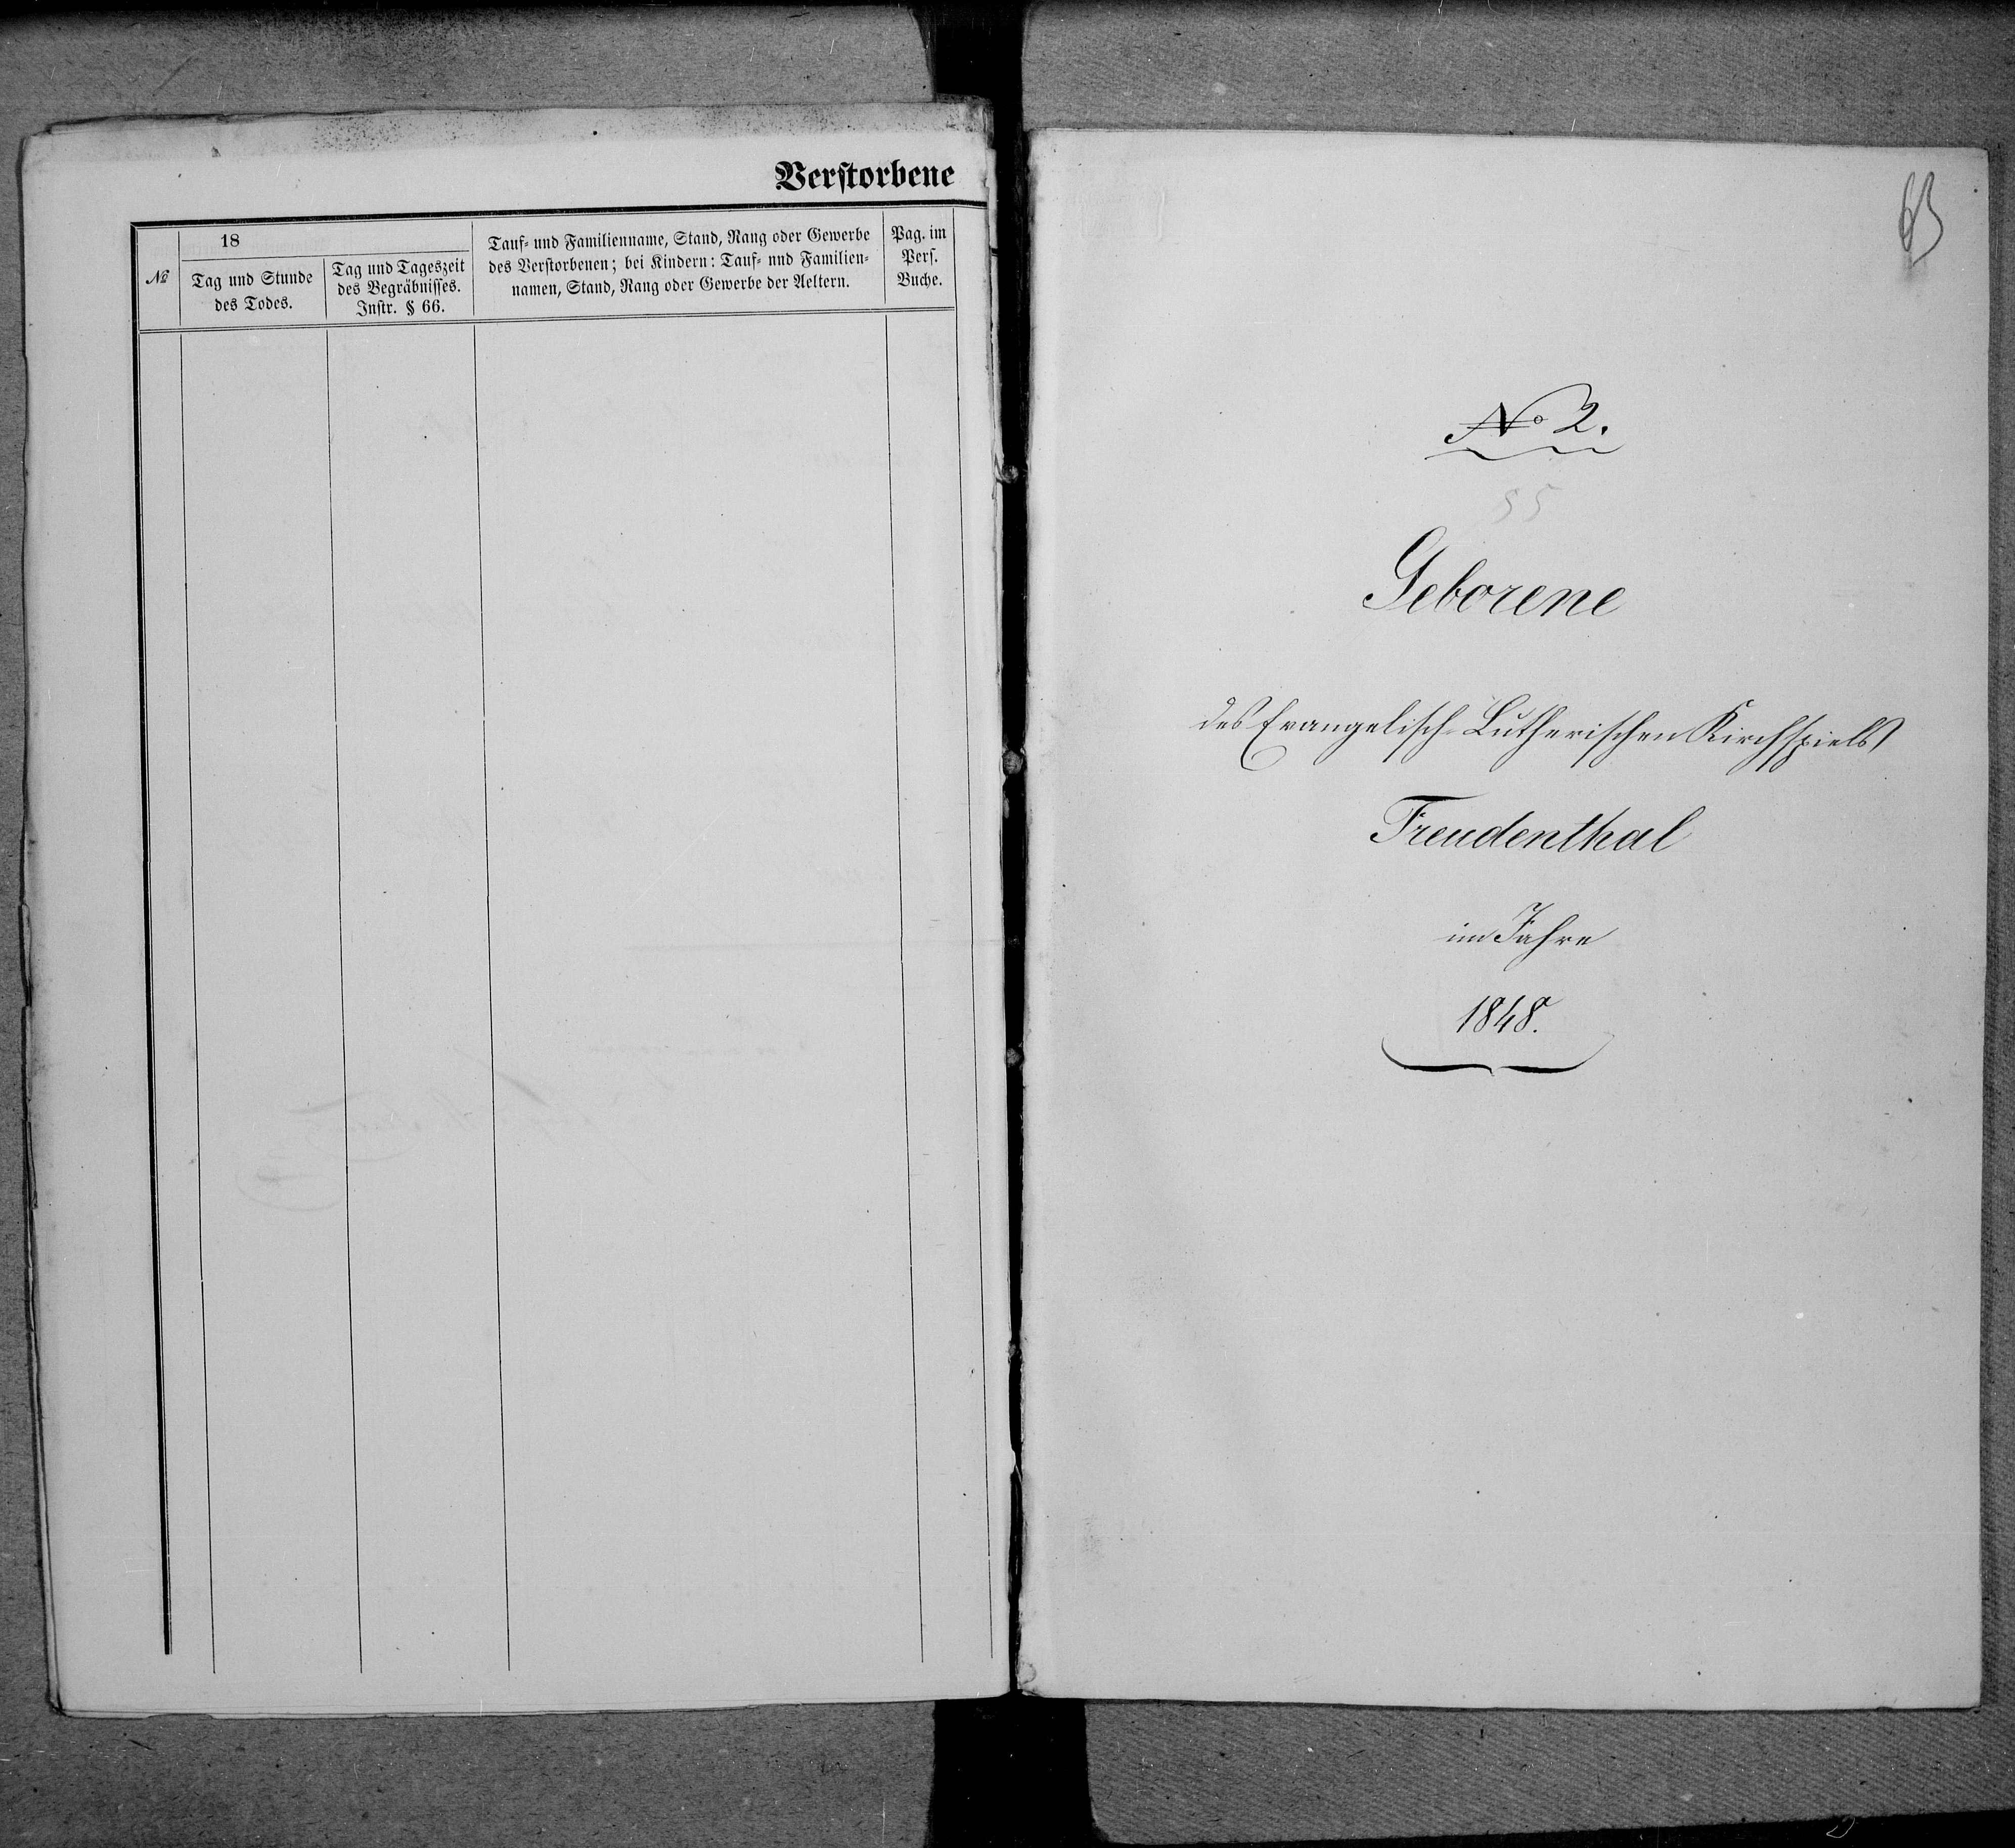 Verstorbene
№
18
Tag und Stunde
des Todes.
Tag und Tageszeit
des Begräbnisses.
Instr. § 66.
Tauf- und Familienname, Stand, Rang oder Gewerbe
des Verstorbenen; bei Kindern: Tauf- und Familien-
namen, Stand, Rang oder Gewerbe der Aeltern.
Pag. im
Pers.
Buche.
63
№ 2.
55
Geborene
des Evangelisch-Lutherischen Kirchspiels
Freudenthal
im Jahre
1848.